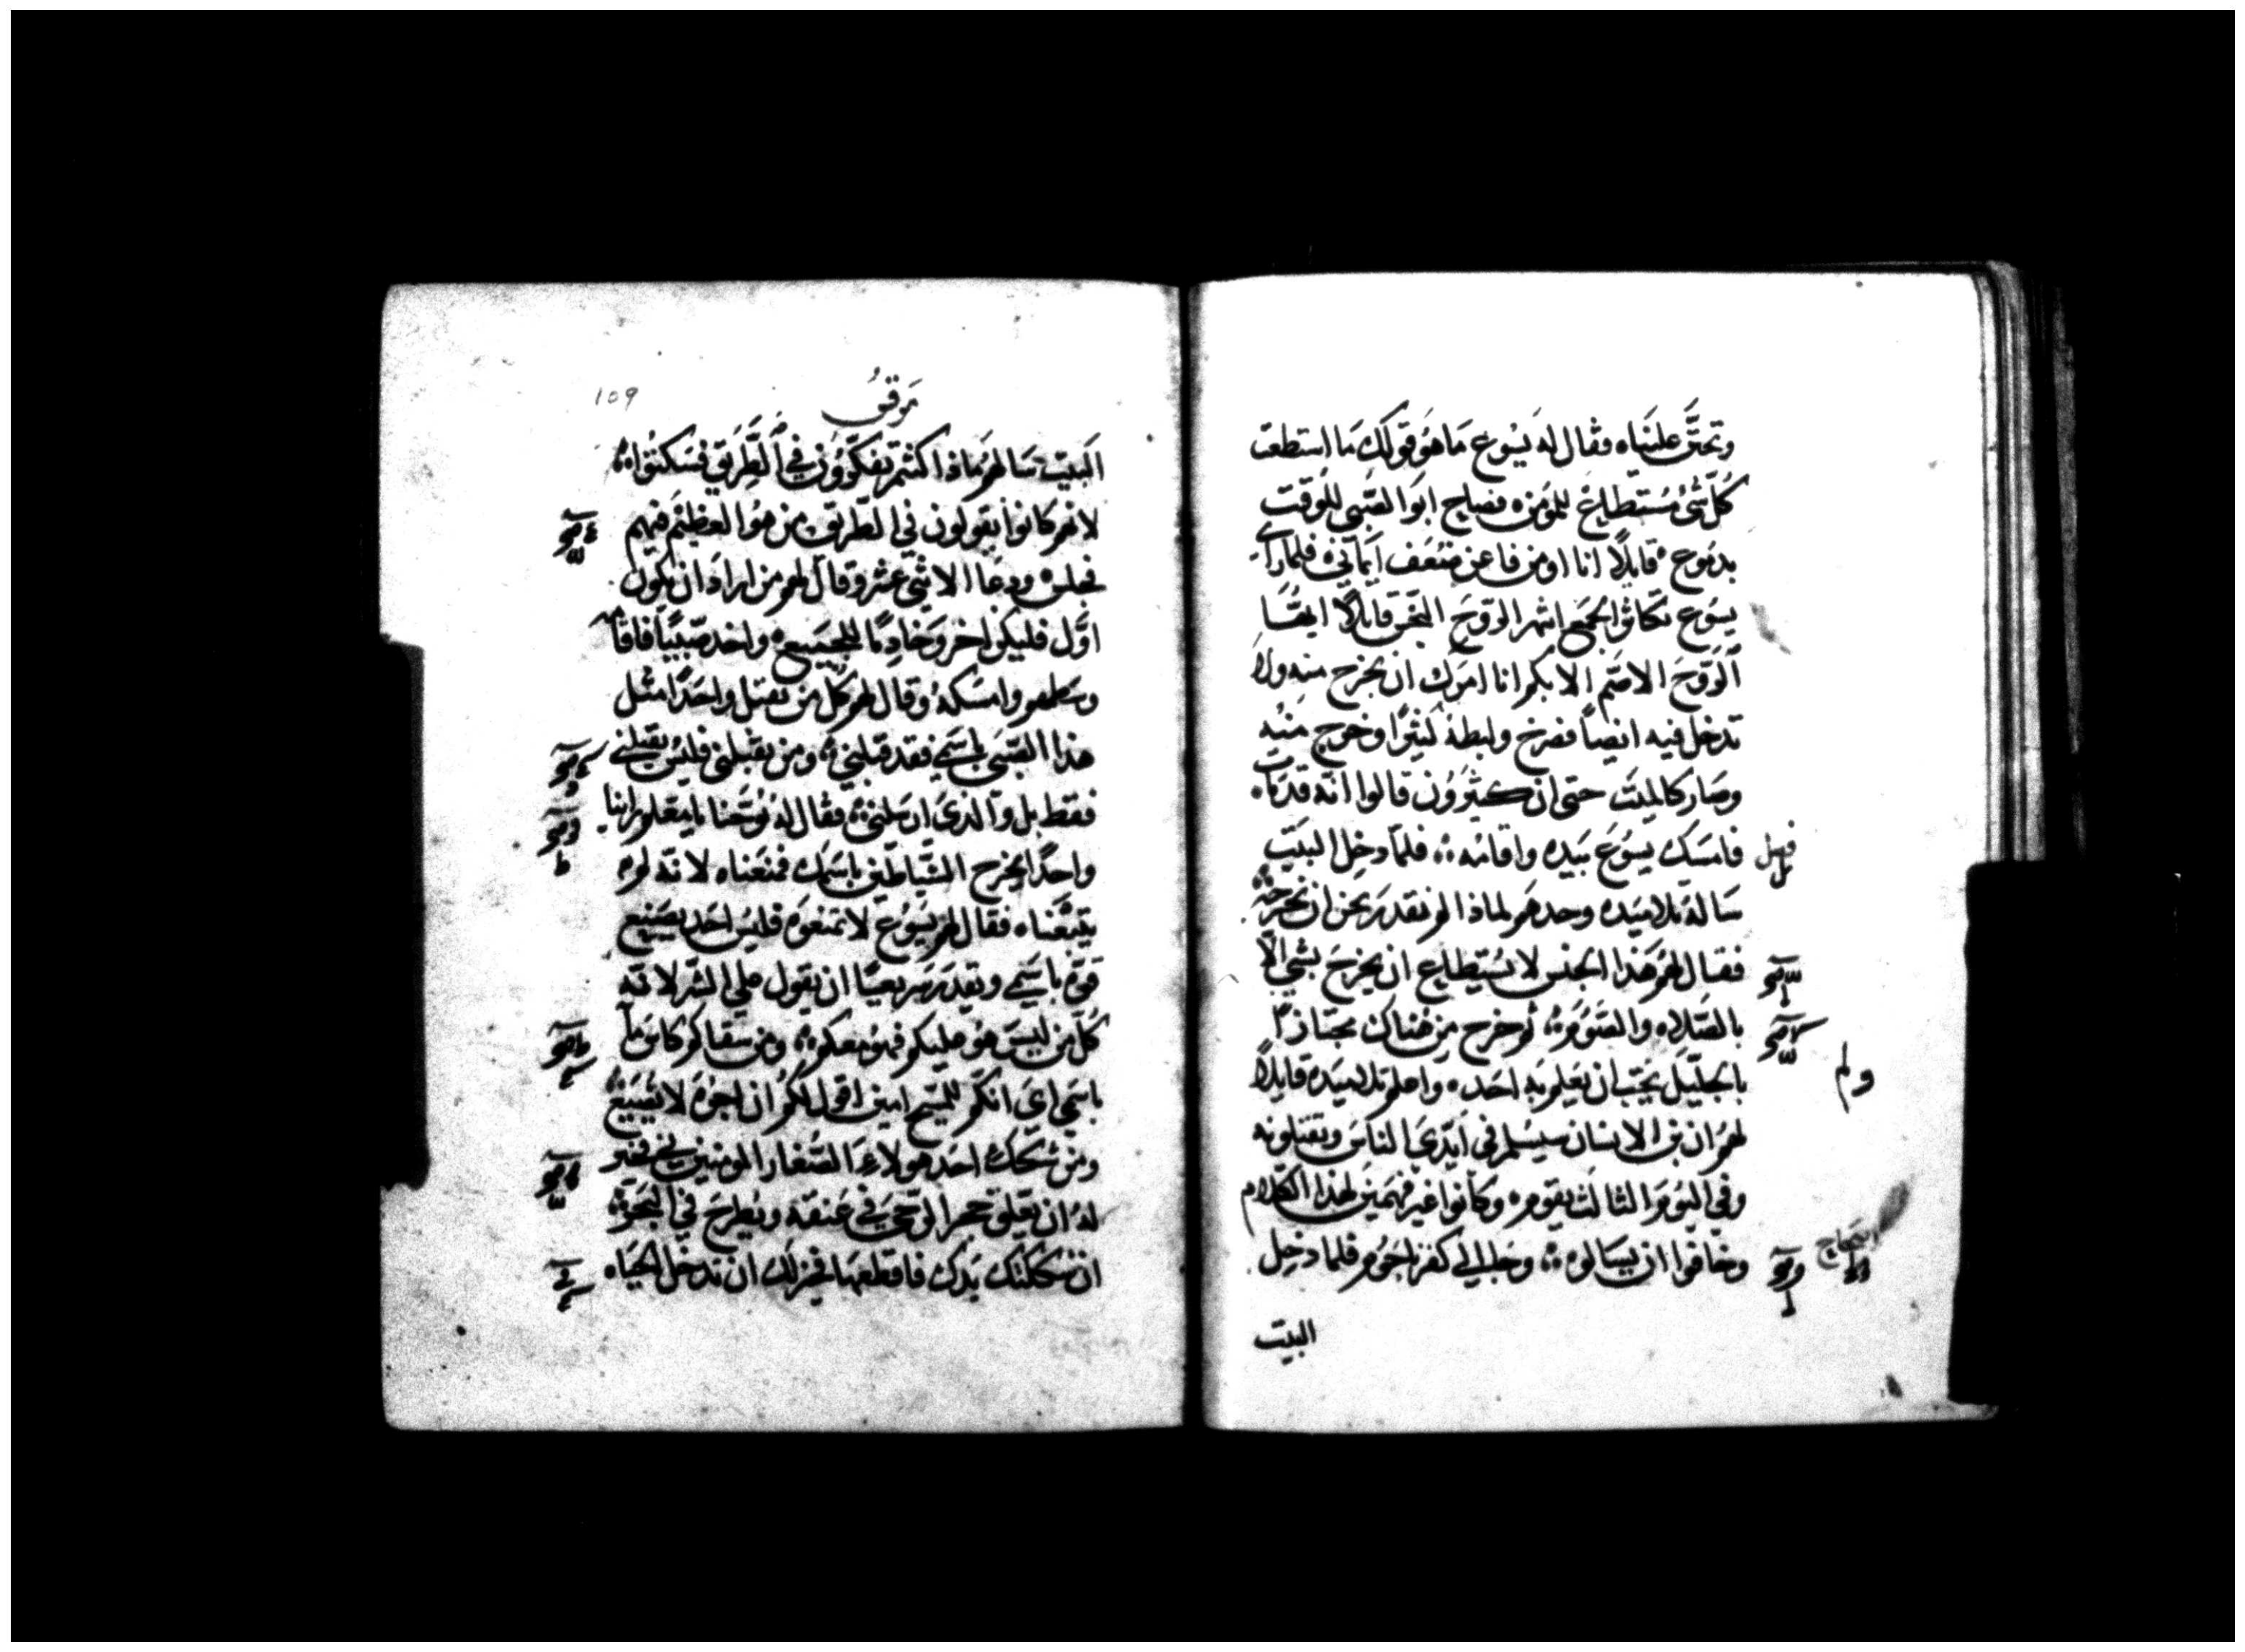 وتحنن علينا ه فقال له يسوع ما هو قولك ما استطعت
كل شي مستطاع للمومن ه فصاح ابو الصبي للوقت
بدموع ه قايلاً انا اومن فاعن ضعف ايماني ه فلما راي
يسوع تكاثر الجمع انتهر الروح النجس قايلاً ايها
الروح الاصم الابكم انا امرك ان تخرج منه ولا
تدخل فيه ايضاً فصرخ ولبطه كثيرا وخرج منه
وصار كالميت حتى ان كثيرون قالوا انه قد مات ه
فصل
فامسك يسوع بيده واقامه ؞ فلما دخل البيت
ساله تلاميذه وحدهم لماذا لم نقدر نحن ان نخرجه ؞
فقال لهم هذا الجنس لا يستطاع ان يخرج بشي الا
بالصلاه والصوم ؞ ثم خرج من هناك مجتازا
ولم
بالجليل يحب ان يعلم به احد ه واعلم تلاميذه قايلاً
لهم ان بن الانسان سيسلم في ايدي الناس ويقتلونه
وفي اليوم الثالث يقوم ه وكانوا غير فهمين لهذا الكلام
وخافوا ان يسالوه ؞ وجا الي كفرناحوم فلما دخل
البيت
مرقس
109
البيت سالهم ماذا كنتم تفكرون في الطريق فسكتوا ؞
لانهم كانوا يقولون في الطريق من هو العظيم فيهم
فجلس ودعا الاثني عشر وقال لهم من اراد ان يكون
اول فليكن اخر وخادمًا للجميع ه واخد صبيًا فاقامه
وسطهم وامسكه وقال لهم كل من يقبل واحدًا مثل
هذا الصبي باسمي فقد قبلني ؞ ومن يقبلني فليس يقبلني
فقط بل والذي ارسلني ؞ فقال له يوحنا يا معلم راينا
واحدًا يخرج الشياطين باسمك فمنعناه لانه لم
يتبعنا ه فقال لهم يسوع لا تمنعوه فليس احد يصنع
قوه باسمي ويقدر سريعًا ان يقول علي الشر لانه
كل من ليس هو عليكم فهو معكم ؞ ومن سقاكم كاس ما
باسمي اي انكم للمسيح امين اقول لكم ان اجره لا يضيع
ومن شكك احد هولاء الصغار المومنين بي فخير
له ان يعلق حجر الرحي في عنقه ويطرح في البحر ؞
ان شككتك يدك فاقطعها فخير لك ان تدخل الحياه